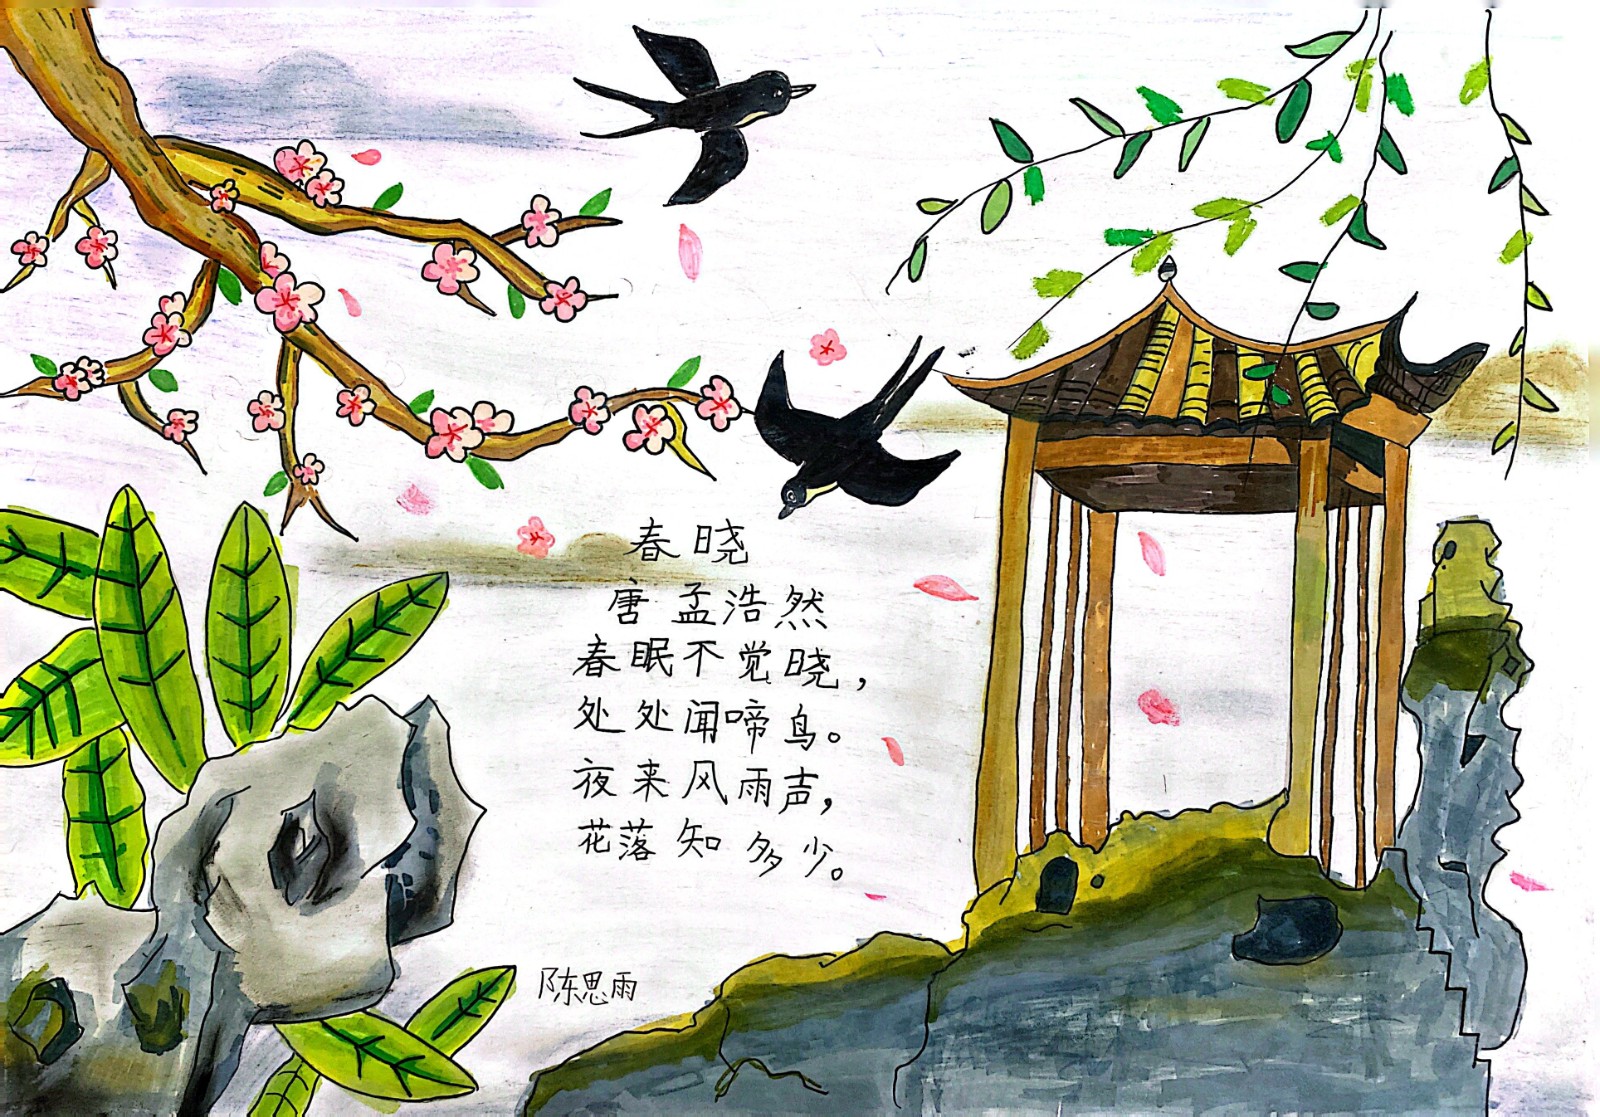 春晓
唐 孟浩然
春眠不觉晓，
处处闻啼鸟。
夜来风雨声，
花落知多少。
陈思雨